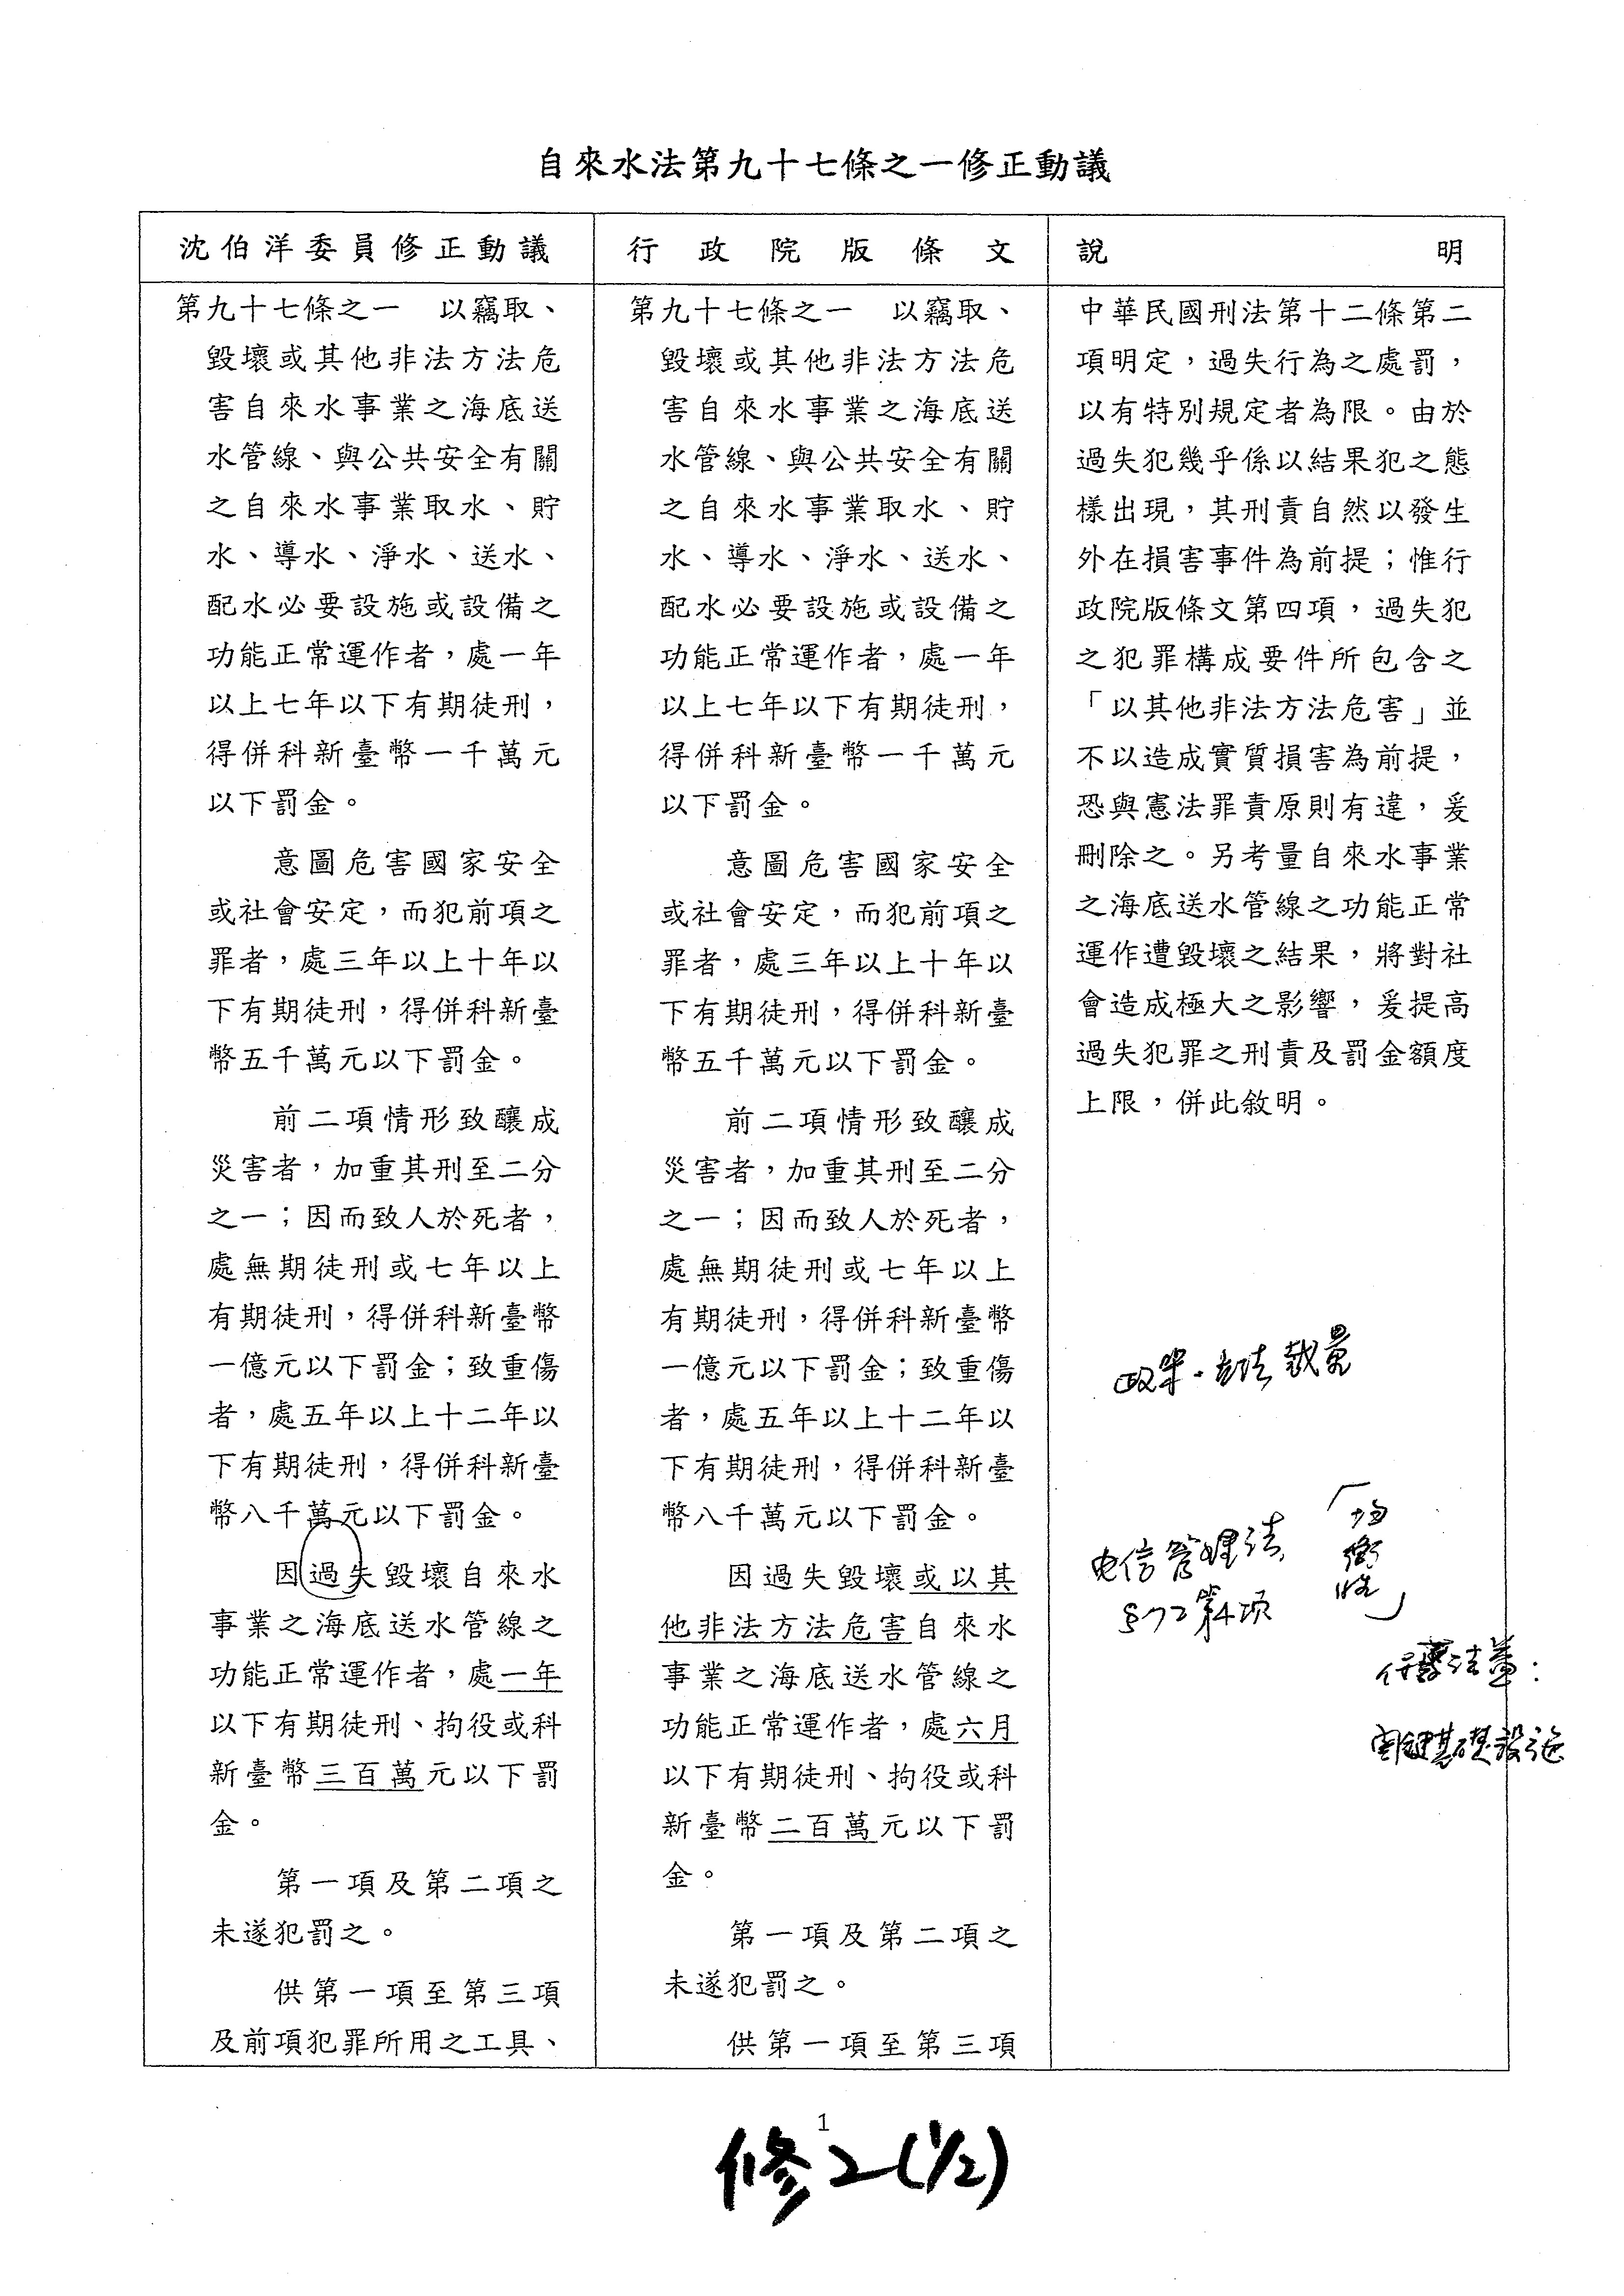 自來水法第九十七條之一修正動議
沈伯洋委員修正動議
第九十七條之一　以竊取、
毀壞或其他非法方法危
害自來水事業之海底送
水管線、與公共安全有關
之自來水事業取水、貯
水、導水、淨水、送水、
配水必要設施或設備之
功能正常運作者，處一年
以上七年以下有期徒刑，
得併科新臺幣一千萬元
以下罰金。
意圖危害國家安全
或社會安定，而犯前項之
罪者，處三年以上十年以
下有期徒刑，得併科新臺
幣五千萬元以下罰金。
前二項情形致釀成
災害者，加重其刑至二分
之一；因而致人於死者，
處無期徒刑或七年以上
有期徒刑，得併科新臺幣
一億元以下罰金；致重傷
者，處五年以上十二年以
下有期徒刑，得併科新臺
幣八千萬元以下罰金。
因過失毀壞自來水
事業之海底送水管線之
功能正常運作者，處一年
以下有期徒刑、拘役或科
新臺幣三百萬元以下罰
金。
第一項及第二項之
未遂犯罰之。
供第一項至第三項
及前項犯罪所用之工具、
行政院版條文
第九十七條之一　以竊取、
毀壞或其他非法方法危
害自來水事業之海底送
水管線、與公共安全有關
之自來水事業取水、貯
水、導水、淨水、送水、
配水必要設施或設備之
功能正常運作者，處一年
以上七年以下有期徒刑，
得併科新臺幣一千萬元
以下罰金。
意圖危害國家安全
或社會安定，而犯前項之
罪者，處三年以上十年以
下有期徒刑，得併科新臺
幣五千萬元以下罰金。
前二項情形致釀成
災害者，加重其刑至二分
之一；因而致人於死者，
處無期徒刑或七年以上
有期徒刑，得併科新臺幣
一億元以下罰金；致重傷
者，處五年以上十二年以
下有期徒刑，得併科新臺
幣八千萬元以下罰金。
因過失毀壞或以其
他非法方法危害自來水
事業之海底送水管線之
功能正常運作者，處六月
以下有期徒刑、拘役或科
新臺幣二百萬元以下罰
金。
第一項及第二項之
未遂犯罰之。
供第一項至第三項
說明
中華民國刑法第十二條第二
項明定，過失行為之處罰，
以有特別規定者為限。由於
過失犯幾乎係以結果犯之態
樣出現，其刑責自然以發生
外在損害事件為前提；惟行
政院版條文第四項，過失犯
之犯罪構成要件所包含之
「以其他非法方法危害」並
不以造成實質損害為前提，
恐與憲法罪責原則有違，爰
刪除之。另考量自來水事業
之海底送水管線之功能正常
運作遭毀壞之結果，將對社
會造成極大之影響，爰提高
過失犯罪之刑責及罰金額度
上限，併此敘明。
政策．立法裁量
电信管理法
§72第4項
「均
衡
性」
關鍵基礎設施
1
修2(1/2)